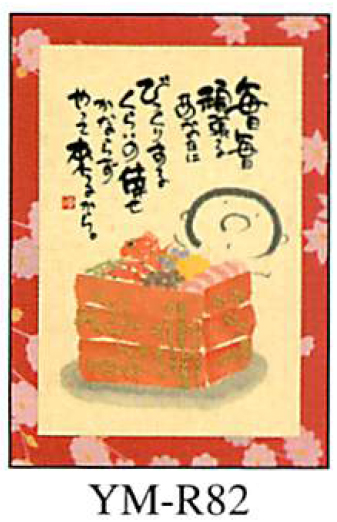 毎日毎日
頑張る
あなたに
びっくりする
くらいの幸せ
かならず
やって来るから。
YM-R82